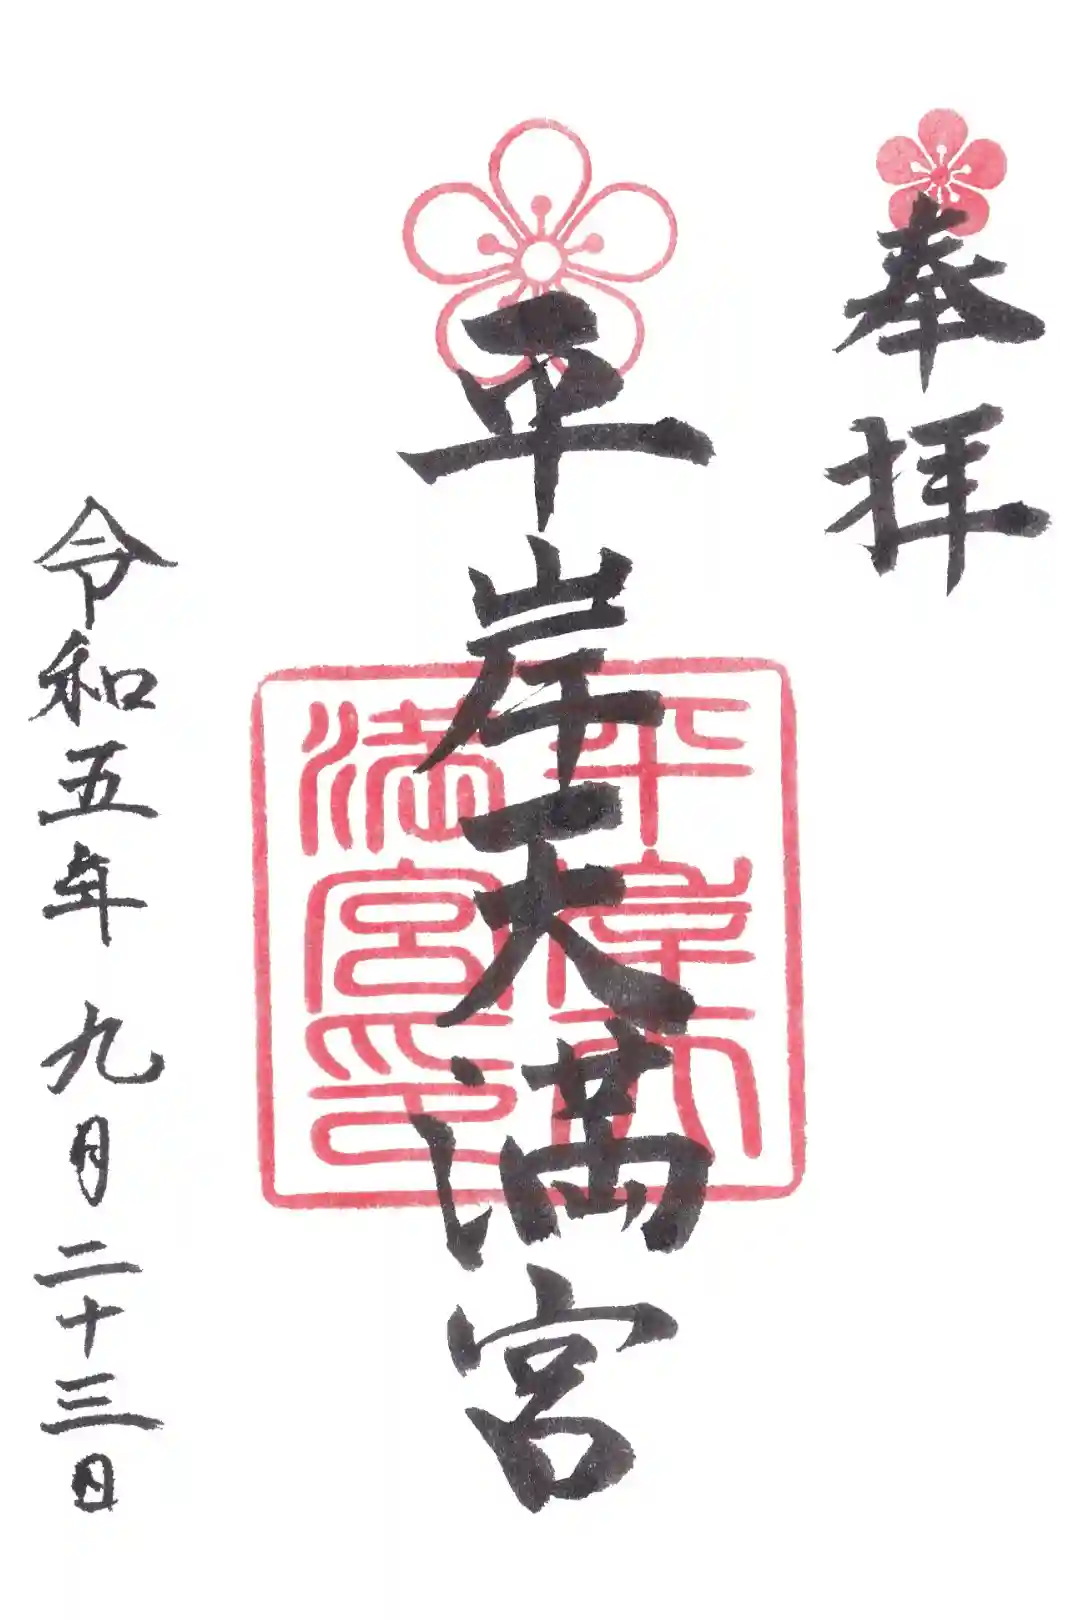 奉拝
平岸天満宮
平岸天
満宮印
令和五年 九月二十三日